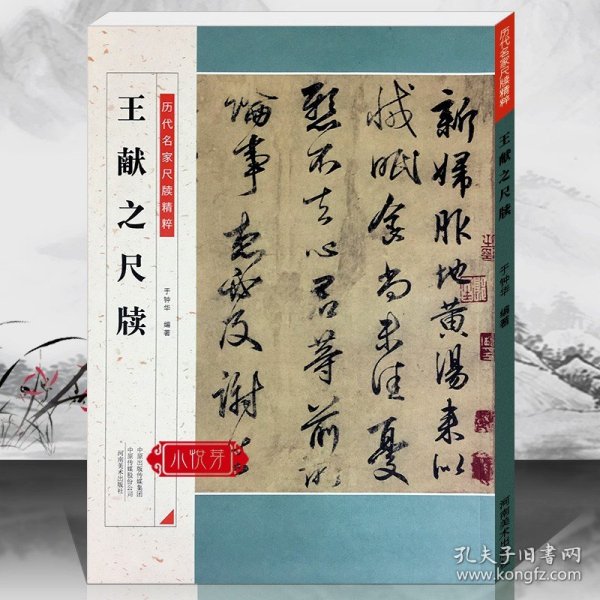 王献之尺牍
历代名家尺牍精粹
于钟华 编著
中原出版传媒集团
中原传媒股份公司
河南美术出版社
新婦服地黄湯来似
减眠食尚未佳憂
懸不去心君等前所
論事想及謝生
小悦芽
历代名家尺牍精粹
王献之尺牍
于钟华 编著
河南美术出
孔夫子旧书网
www.kongfz.com